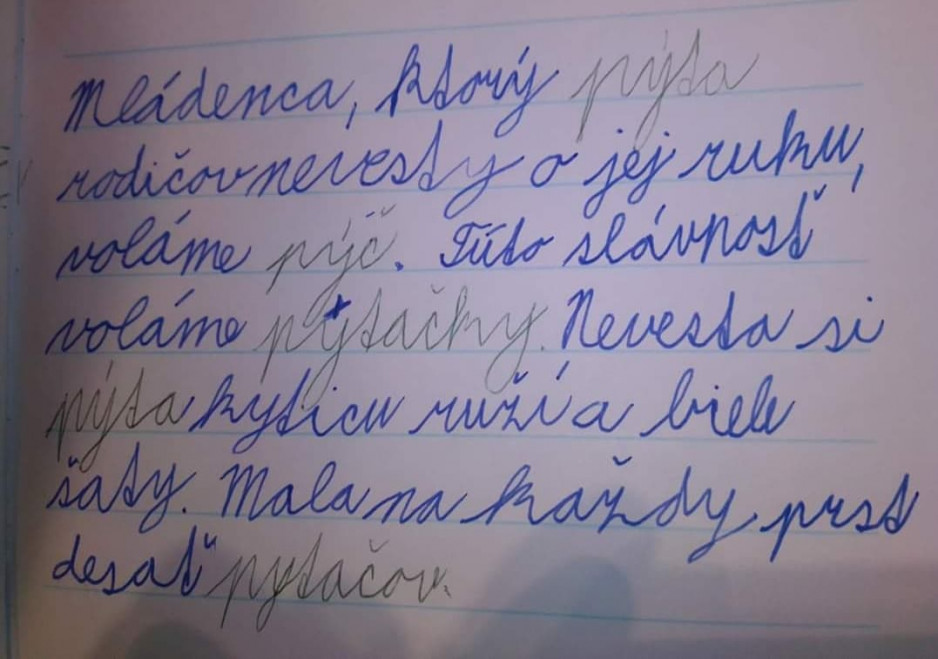 Mládenca, ktorý pýta
rodičov nevesty o jej ruku,
voláme pýč. Túto slávnosť
voláme pytačky. Nevesta si
pýta kyticu ruží a biele
šaty. Mala na každy prst
desať pytačov.